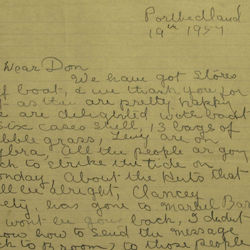 Porthedland
19th 1957
Dear Don
We have got stores
boat, & we thank you for
as they are pretty happy
are delighted
six cases still, 13 bags of
bble grass, Tens are on
all the people are goin
to strike the tide on
onday. About the Huts that
ll be alright, Clancey
ty has gone to Marble Bar
wont be goin back, I didnt
ow how to send the message
ck to Broom, to those people